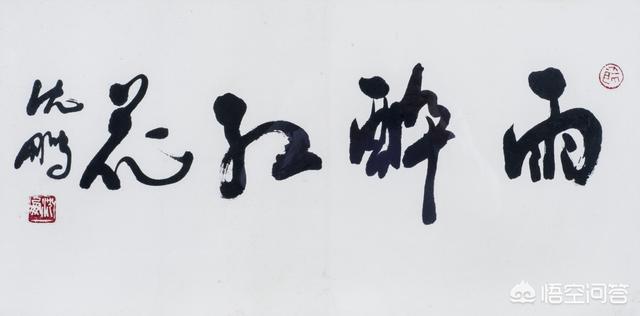 雨醉江花
沈鹏
悟空问答